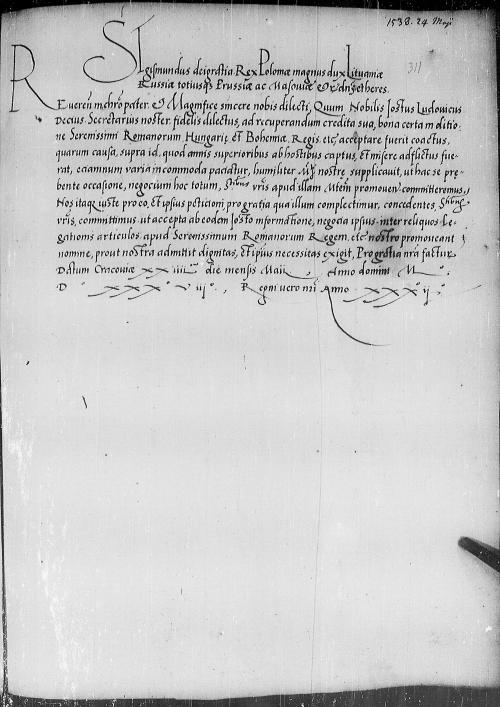 1538. 24 Maij
311
Sigismundus dei gratia Rex Poloniæ magnus dux Lituaniæ
Russiæ totiusq Prussiæ ac Masoviæ etc dns et heres.
Reveren in chro pater. et Magnifice sincere nobis dilecti, Quum Nobilis Iostus Ludovicus
Decius Secretarius noster fidelis dilectus, ad recuperandum credita sua, bona certa in ditio-
ne Serenissimi Romanorum Hungarię Et Bohemiæ. Regis. etc. acceptare fuerit coactus,
quarum causa, supra id. quod annis superioribus ab hostibus captus, Et misere adflictus fue-
rat, etiamnum varia incommoda patiatur, humiliter Mti nostre supplicauit, ut hac se prę-
bente occasione, negocium hoc totum, Stibus vris apud illam Mtem promoven committeremus,
Nos itaq iuste pro eo, Et ipsius peticioni pro gratia qua illum complectimur, concedentes, Stibus
vris, committimus. ut accepta ab eodem Iosto informatione, negocia ipsius inter reliquos Le-
gationis articulos. apud Serenissimum Romanorum Regem. etc. nostro promoveant
nomine, prout nostra admittit dignitas, Et ipsius necessitas exigit, Pro gratia nra factur
Datum Cracoviæ xx iiii die mensis Maii Anno domini M
D xxx viij. Regni vero nri Anno xxx ij